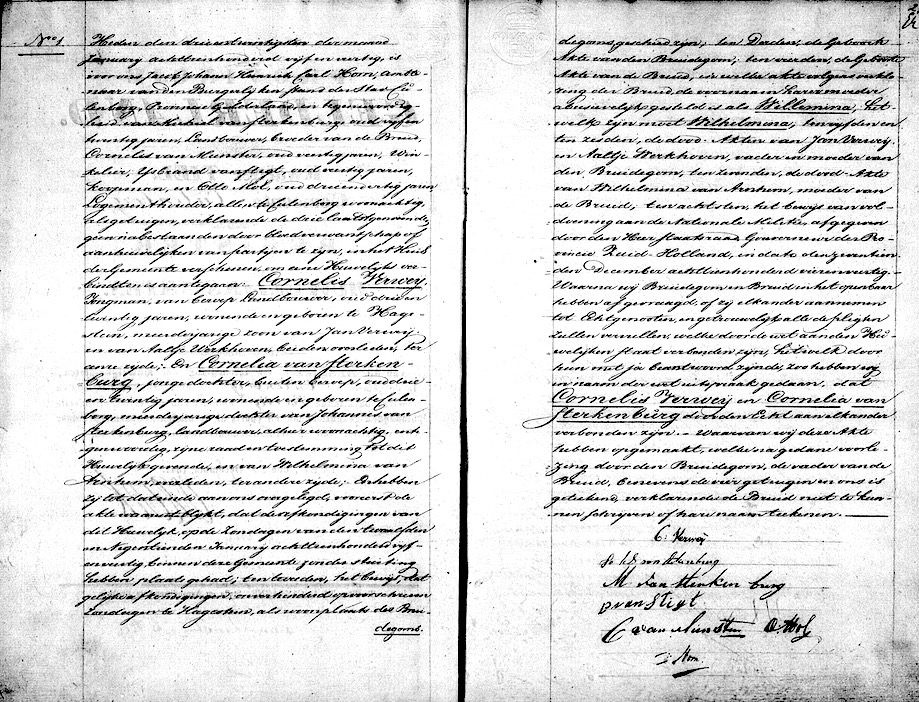 No 1
Heden den drieentwintigsten der maand
January achttienhonderd vijf en veertig, is
voor ons Jacob Johann Hendrik Carl Hom, Ambte-
naar van den Burgerlijken stand der Stad Cu-
lenborg, Provincie Gelderland, in tegenwoordig-
heid van van Sterkenburg, oud vijf en
twintig jaren, Landbouwer, broeder van de Bruid,
Cornelis van Munster, oud veertig jaren, Win-
kelier, IJsbrand van Stijgt, oud veertig jaren,
koopman, en Otto Mol, oud drieendertig jaren
Logementhouder, alle te Culenborg woonachtig,
als getuigen, verklarende de drie laatstgenoemde,
geen nabestaanden door bloedverwantschap of
aanhuwelijken van partijen te zijn, in het Huis
der Gemeente verschenen, om een Huwelijks ver-
bindtenis aantegaan: Cornelis Verweij,
Jongman, van beroep Landbouwer, oud drieen
twintig jaren, wonende en geboren te Hage-
stein, meerderjarige zoon van Jan Verweij
en van Aaltje Werkhoven, beiden overleden, ter
eenre zijde;- En Cornelia van Sterken-
burg, jonge dochter, buiten beroep, oud drie-
en twintig jaren, wonende en geboren te Culen-
borg, meerderjarige dochter van Johannis van
Sterkenburg, Landbouwer, alhier woonachtig, en te-
genwoordig, zijne raad en toestemming tot dit
Huwelijk gevende, en van Wilhelmina van
Arnhem, overleden, ter andere zijde;- En hebben
zij tot dat einde aan ons overgelegd, vooreerst de
akte waaruit blijkt, dat de afkondigingen van
dit Huwelijk, op de Zondagen van den twaalfden
en Negentienden January achttienhonderd vijf-
enveertig, binnen deze Gemeente zonder stuiting
hebben plaats gehad; ten tweeden, het bewijs, dat
gelijke afkondigingen, onverhinderd op voorschreven
Zondagen te Hagestein, als woonplaats des Brui-
degoms.
degoms, geschied zijn; ten Derden, de Geboorte
Akte van den Bruidegom; ten vierden, de Geboorte
Akte van de Bruid, in welke akte volgens verkla-
ring der Bruid, de voornaam harer moeder
abusievelijk gesteld is als Willemina, het-
welk zijn moet Wilhelmina; ten vijfden en
ten zesden, de dood-Akten van Jan Verweij
en Aaltje Werkhoven, vader en moeder van
den Bruidegom; ten zevenden, de dood-Akte
van Wilhelmina van Arnhem, moeder van
de Bruid; ten achtsten, het bewijs van vol-
doening aan de Nationale Militie, afgegeven
door den Heer Staatsraad Gouverneur der Pro-
vincie Zuid-Holland, in dato den zeventien-
den December achttienhonderd vierenveertig.-
Waarna wij Bruidegom en Bruid in het openbaar
hebben afgevraagd: of zij elkander aannemen
tot Echtgenooten, en getrouwelijk alle de pligten
zullen vervullen, welke door de wet aan den Hu-
welijken staat verbonden zijn, hetwelk door
hun met ja beantwoord zijnde, zoo hebben wij
in naam der wet uitspraak gedaan, dat
Cornelis Verweij en Cornelia van
Sterkenburg door den Echt aan elkander
verbonden zijn.- Waarvan wij deze Akte
hebben opgemaakt, welke na gedane voorle-
zing door den Bruidegom, de vader van de
Bruid, benevens de vier getuigen en ons is
geteekend, verklarende de Bruid niet te kun-
nen schrijven of haar naam teekenen.
C. Verweij
van Sterkenburg
M. van Sterkenburg
van Stigt
C van Munster O. Mol
Hom